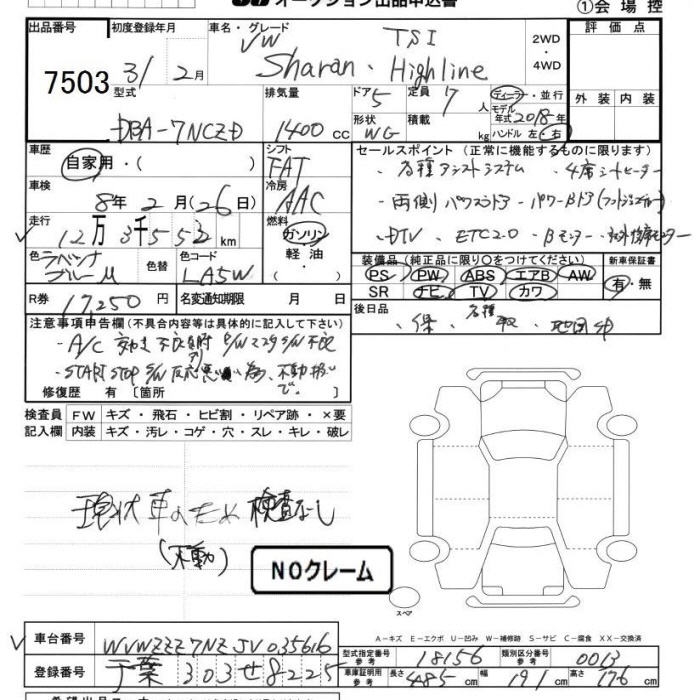 オークション出品申込書 ①会場控
出品番号 初度登録年月 車名・グレード 2WD・4WD 評価点
7503 31/2月 VW TSI
Sharan・Highline
型式 排気量 ドア 5 定員 7人 ディーラー・並行 外装 内装
DBA-7NCZD 1400cc 形状 WG 積載 kg モデル年式 2018年 ハンドル 左・右
車歴 自家用・( ) シフト FAT セールスポイント(正常に機能するものに限ります)
・各種アシストシステム ・4席シートヒーター
車検 8年2月(26日) 冷房 AAC
・両側パワースライドドア・パワーBドア
走行 12万3千552km 燃料 ガソリン・軽油・( )
・DTV・ETC2.0・Bモニター
色 ラベンナブルーM 色替 色コード LA5W
装備品(純正品に限り○をつけてください) 新車保証書
PS PW ABS エアB AW 有・無
SR ナビ TV カワ
R券 17,250円 名変通知期限 月 日
後日品 ・保・各種取・地図
注意事項申告欄(不具合内容等は具体的に記入して下さい)
・A/C
・START STOP S/W反応悪い為、不動扱いで。
修復歴 有 〔箇所
検査員 FW キズ・飛石・ヒビ割・リペア跡・×要
記入欄 内装 キズ・汚レ・コゲ・穴・スレ・キレ・破レ
現状車のため検査なし
(不動)
NOクレーム
スペア
A-キズ E-エクボ U-凹み W-補修跡 S-サビ C-腐食 XX-交換済
車台番号 WVWZZZ7NZJV035616
型式指定番号 参考 18156 類別区分番号 参考 0013
登録番号 千葉 303 せ 8225
車庫証明用 参考 長さ 485cm 幅 191cm 高さ 176cm